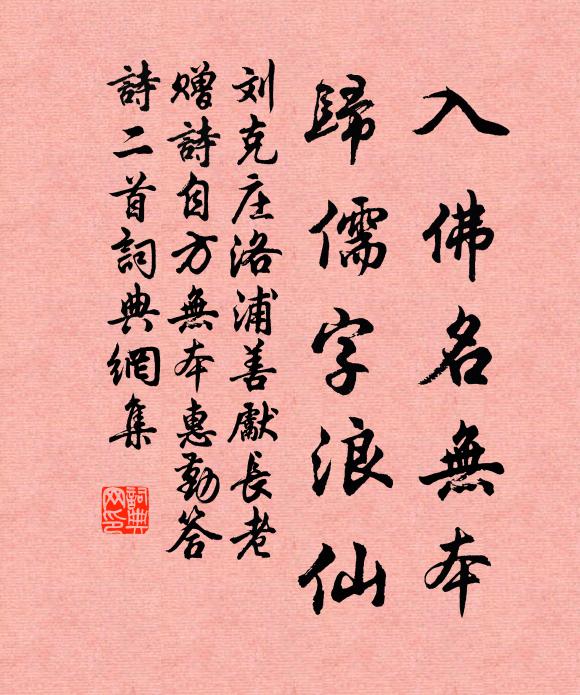 入佛名無本
歸儒字浪仙
刘克庄洛浦善獻長老
贈詩自方無本惠勤答
詩二首詞典網集
詞典
网印